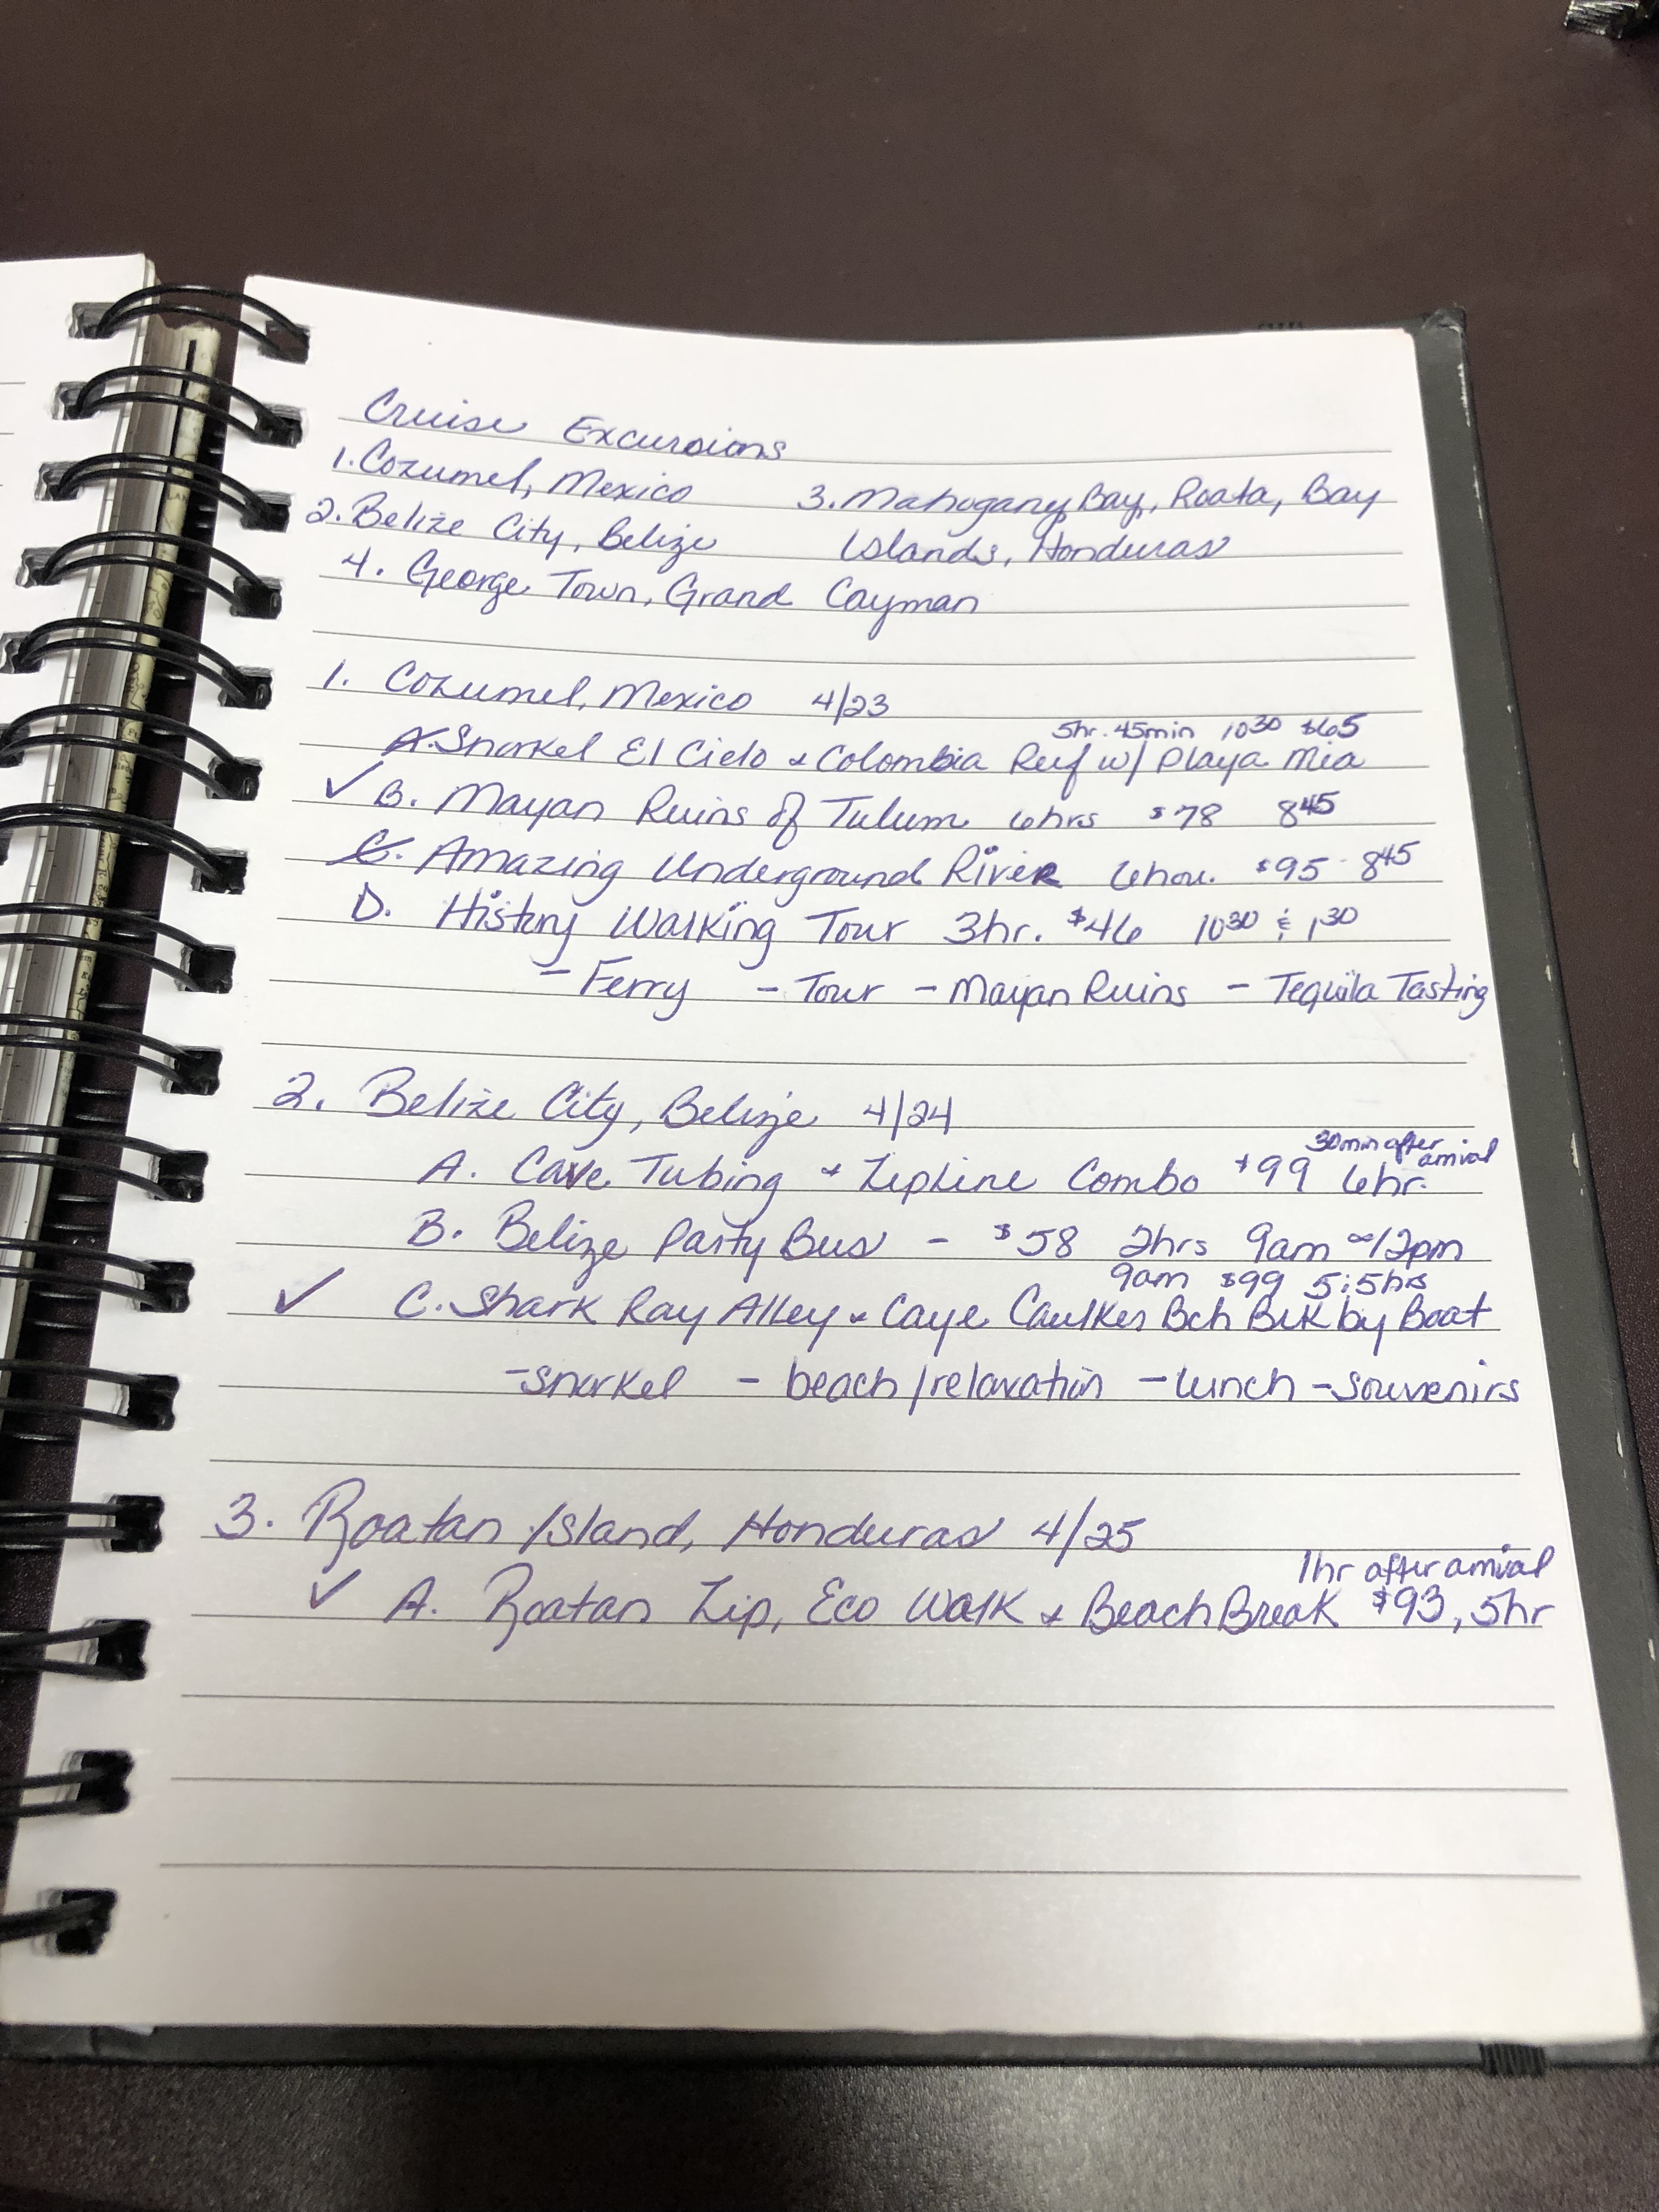 Cruise Excursions
1. Cozumel, Mexico 3. Mahogany Bay, Roata, Bay
2. Belize City, Belize Islands, Honduras
4. George Town, Grand Cayman
1. Cozumel, Mexico 4/23
5hr. 45min 10³⁰ $65
A. Snorkel El Cielo & Colombia Reef w/ Playa Mia
✓ B. Mayan Ruins of Tulum 6hrs $78 8⁴⁵
C. Amazing Underground River 6hou. $95 - 8⁴⁵
D. History Walking Tour 3hr. $46 10³⁰ & 1³⁰
- Ferry - Tour - Mayan Ruins - Tequila Tasting
2. Belize City, Belize 4/24
30min after arrival
A. Cave Tubing & Zipline Combo $99 6hr.
B. Belize Party Bus - $58 2hrs 9am 12pm
9am $99 5:5hrs
✓ C. Shark Ray Alley & Caye Caulker Bch Brk by Boat
- snorkel - beach/relaxation - lunch - souvenirs
3. Roatan Island, Honduras 4/25
1hr after arrival
✓ A. Roatan Zip, Eco Walk & Beach Break $93, 5hr